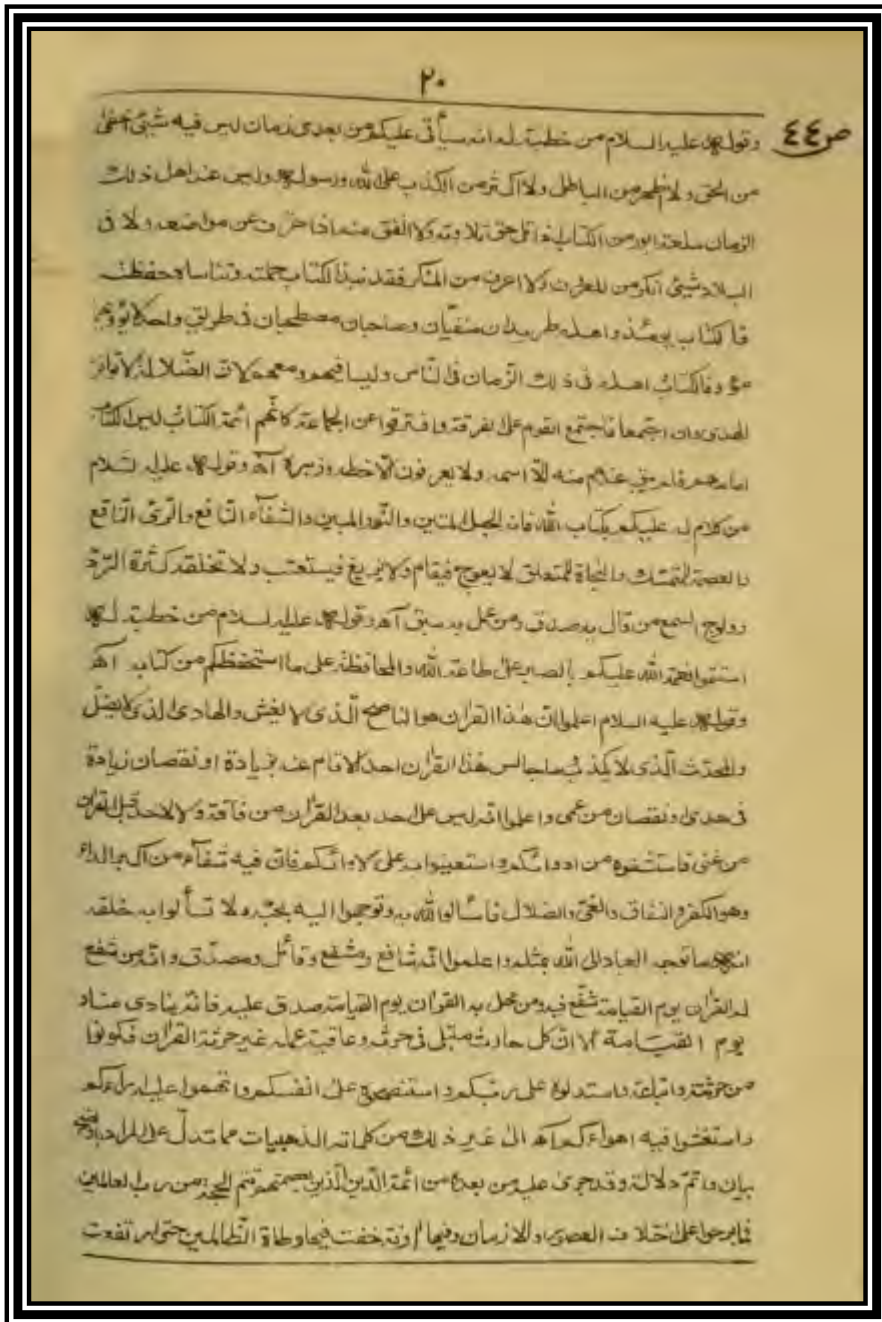 ٢٠
ص٤٤
وقوله عليه السلام من خطبة له انه سيأتى عليكم من بعدى زمان ليس فيه شيئ اخفى
من الحق ولا اظهر من الباطل ولا اكثر من الكذب على الله ورسوله وليس عند اهل ذلك
الزمان سلعة ابور من الكتاب اذا تلى حق تلاوته ولا انفق منه اذا حرف عن مواضعه ولا فى
البلاد شيئ انكر من المعروف ولا اعرف من المنكر فقد نبذ الكتاب حملته وتناساه حفظته
فالكتاب يومئذ واهله طريدان منفيان وصاحبان مصطحبان فى طريق واحد لا يؤويهما
مؤو فالكتاب واهله فى ذلك الزمان فى الناس وليسا فيهم ومعهم لان الضلالة لا توافق
الهدى وان اجتمعا فاجتمع القوم على الفرقة وافترقوا عن الجماعة كانهم ائمة الكتاب وليس الكتاب
امامهم فلم يبق عندهم منه الا اسمه ولا يعرفون الا خطه وزبره آه وقوله عليه السلام
من كلام له عليكم بكتاب الله فانه الحبل المتين والنور المبين والشفآء النافع والرى الناقع
والعصمة للمتمسك والنجاة للمتعلق لا يعوج فيقام ولا يزيغ فيستعتب ولا تخلقه كثرة الرد
وولوج السمع من قال به صدق ومن عمل به سبق آه وقوله عليه السلام من خطبة له
استتموا نعمة الله عليكم بالصبر على طاعة الله والمحافظة على ما استحفظكم من كتابه آه
وقوله عليه السلام اعلموا ان هذا القرآن هو الناصح الذى لا يغش والهادى الذى لا يضل
والمحدث الذى لا يكذب ما جالس هذا القرآن احد الا قام عنه بزيادة او نقصان زيادة
فى هدى ونقصان من عمى واعلموا انه ليس على احد بعد القرآن من فاقة ولا لاحد قبل القرآن
من غنى فاستشفوه من ادوائكم واستعينوا به على لاوائكم فان فيه شفآء من اكبر الداء
وهو الكفر والنفاق والغى والضلال فاسألوا الله به وتوجهوا اليه بحبه ولا تسألوا به خلقه
انه ما توجه العباد الى الله بمثله واعلموا انه شافع ومشفع وقائل ومصدق وانه من شفع
له القرآن يوم القيامة شفع فيه ومن محل به القرآن يوم القيامة صدق عليه فانه ينادى مناد
يوم القيامة الا ان كل حارث مبتلى فى حرثه وعاقبة عمله غير حرثة القرآن فكونوا
من حرثته واتباعه واستدلوه على ربكم واستنصحوه على انفسكم واتهموا عليه اراءكم
واستغشوا فيه اهواءكم آه الى غير ذلك من كلماته الذهبيات مما تدل على المراد باوضح
بيان واتم دلالة وقد جرى عليه من بعده من ائمة الدين الذين بعصمتهم تتم الحجة من رب العالمين
فما برحوا على اختلاف العصور والازمان وفيها ازمنة خفت فيها وطاة الظالمين حتى لم تفوت